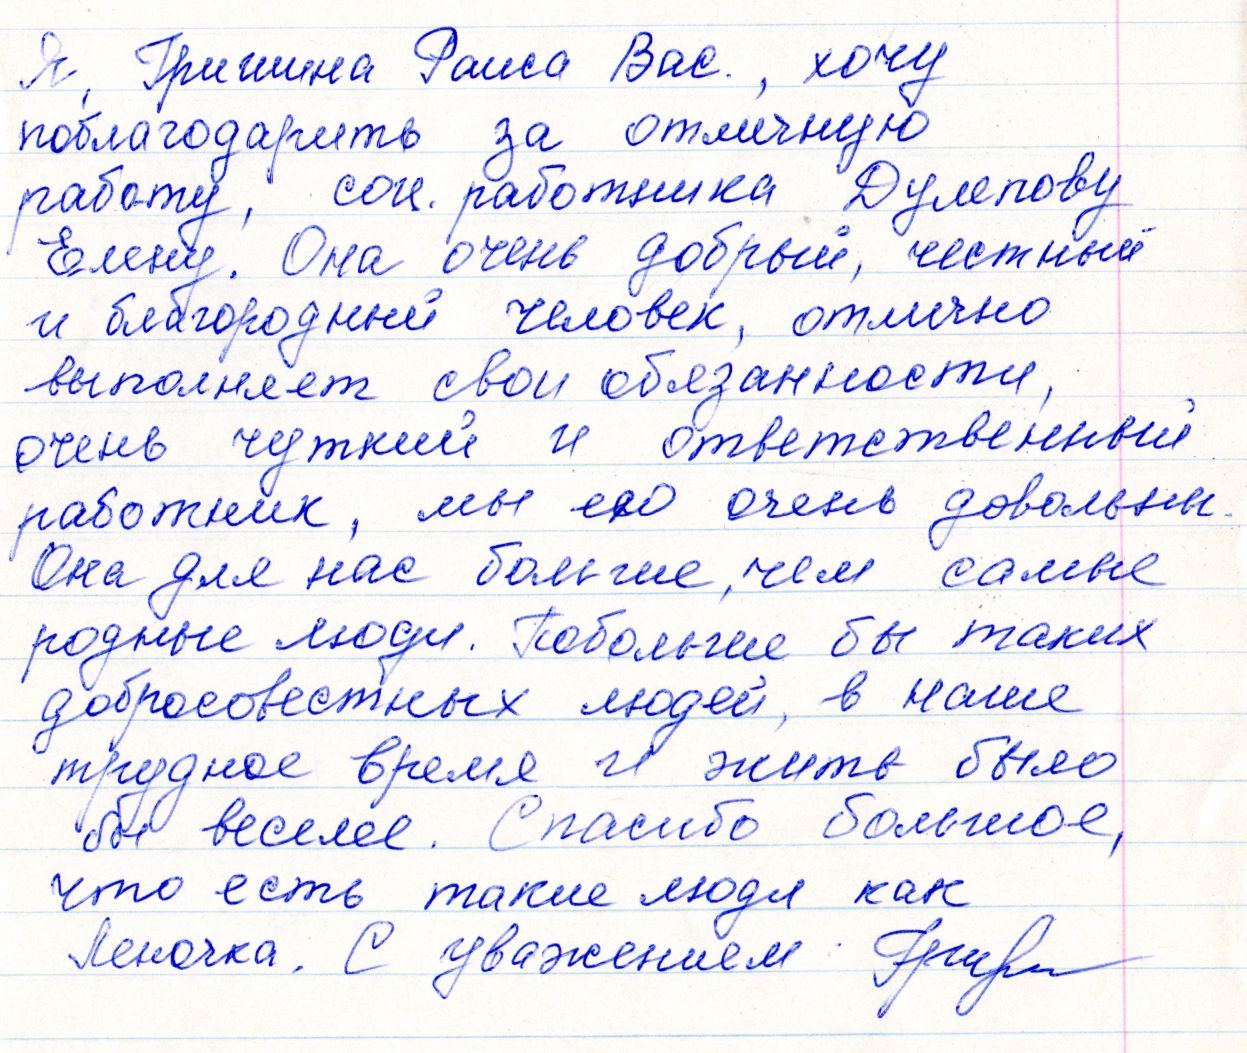 Я, Гришина Раиса Вас., хочу
поблагодарить за отличную
работу, соц. работника Дулепову
Елену. Она очень добрый, честный
и благородный человек, отлично
выполняет свои обязанности,
очень чуткий и ответственный
работник, мы ею очень довольны.
Она для нас больше, чем самые
родные люди. Побольше бы таких
добросовестных людей, в наше
трудное время и жить было
бы веселее. Спасибо большое,
что есть такие люди как
Леночка. С уважением